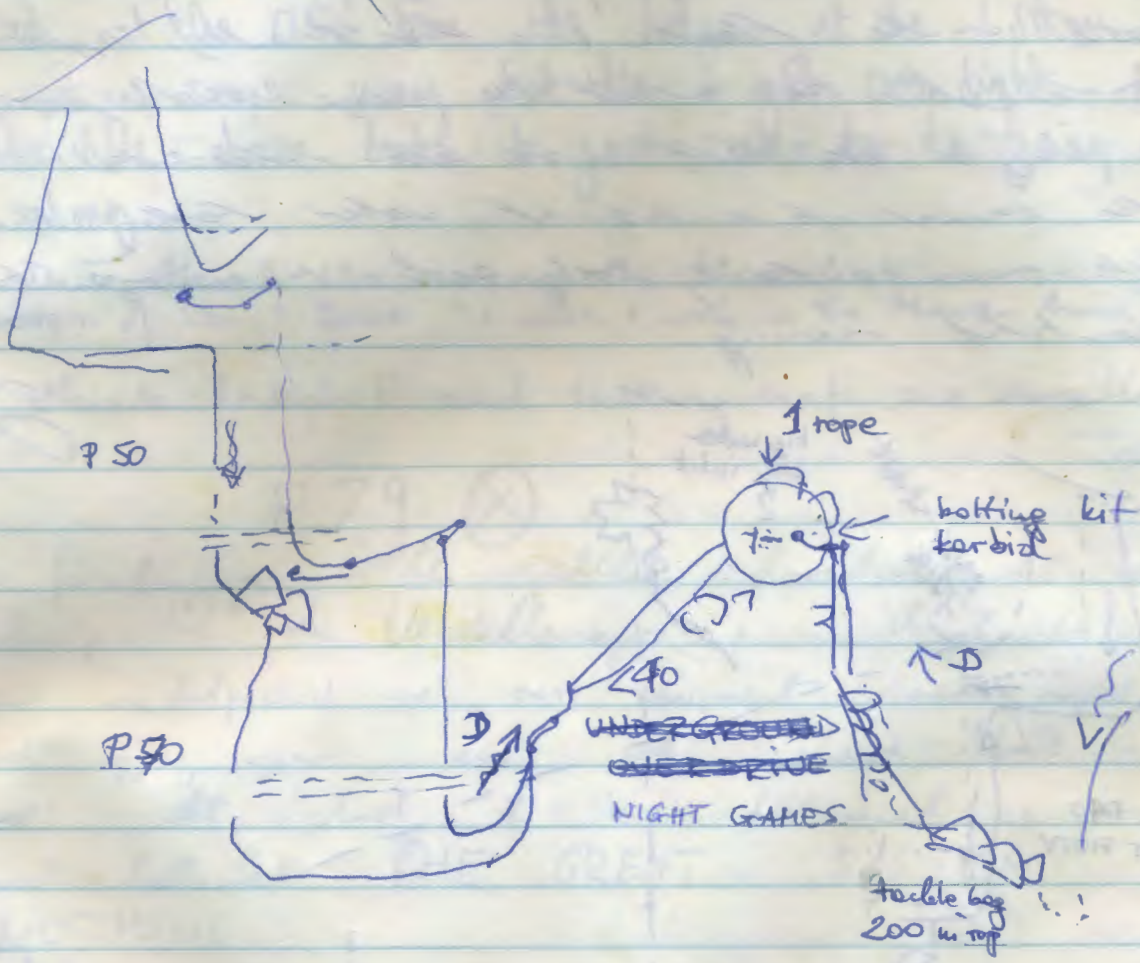 P 50
1 rope
bolting kit
karbid
<40
D
D
P 50
UNDERGROUND
OVERDRIVE
NIGHT GAMES
tackle bag
200 m rop